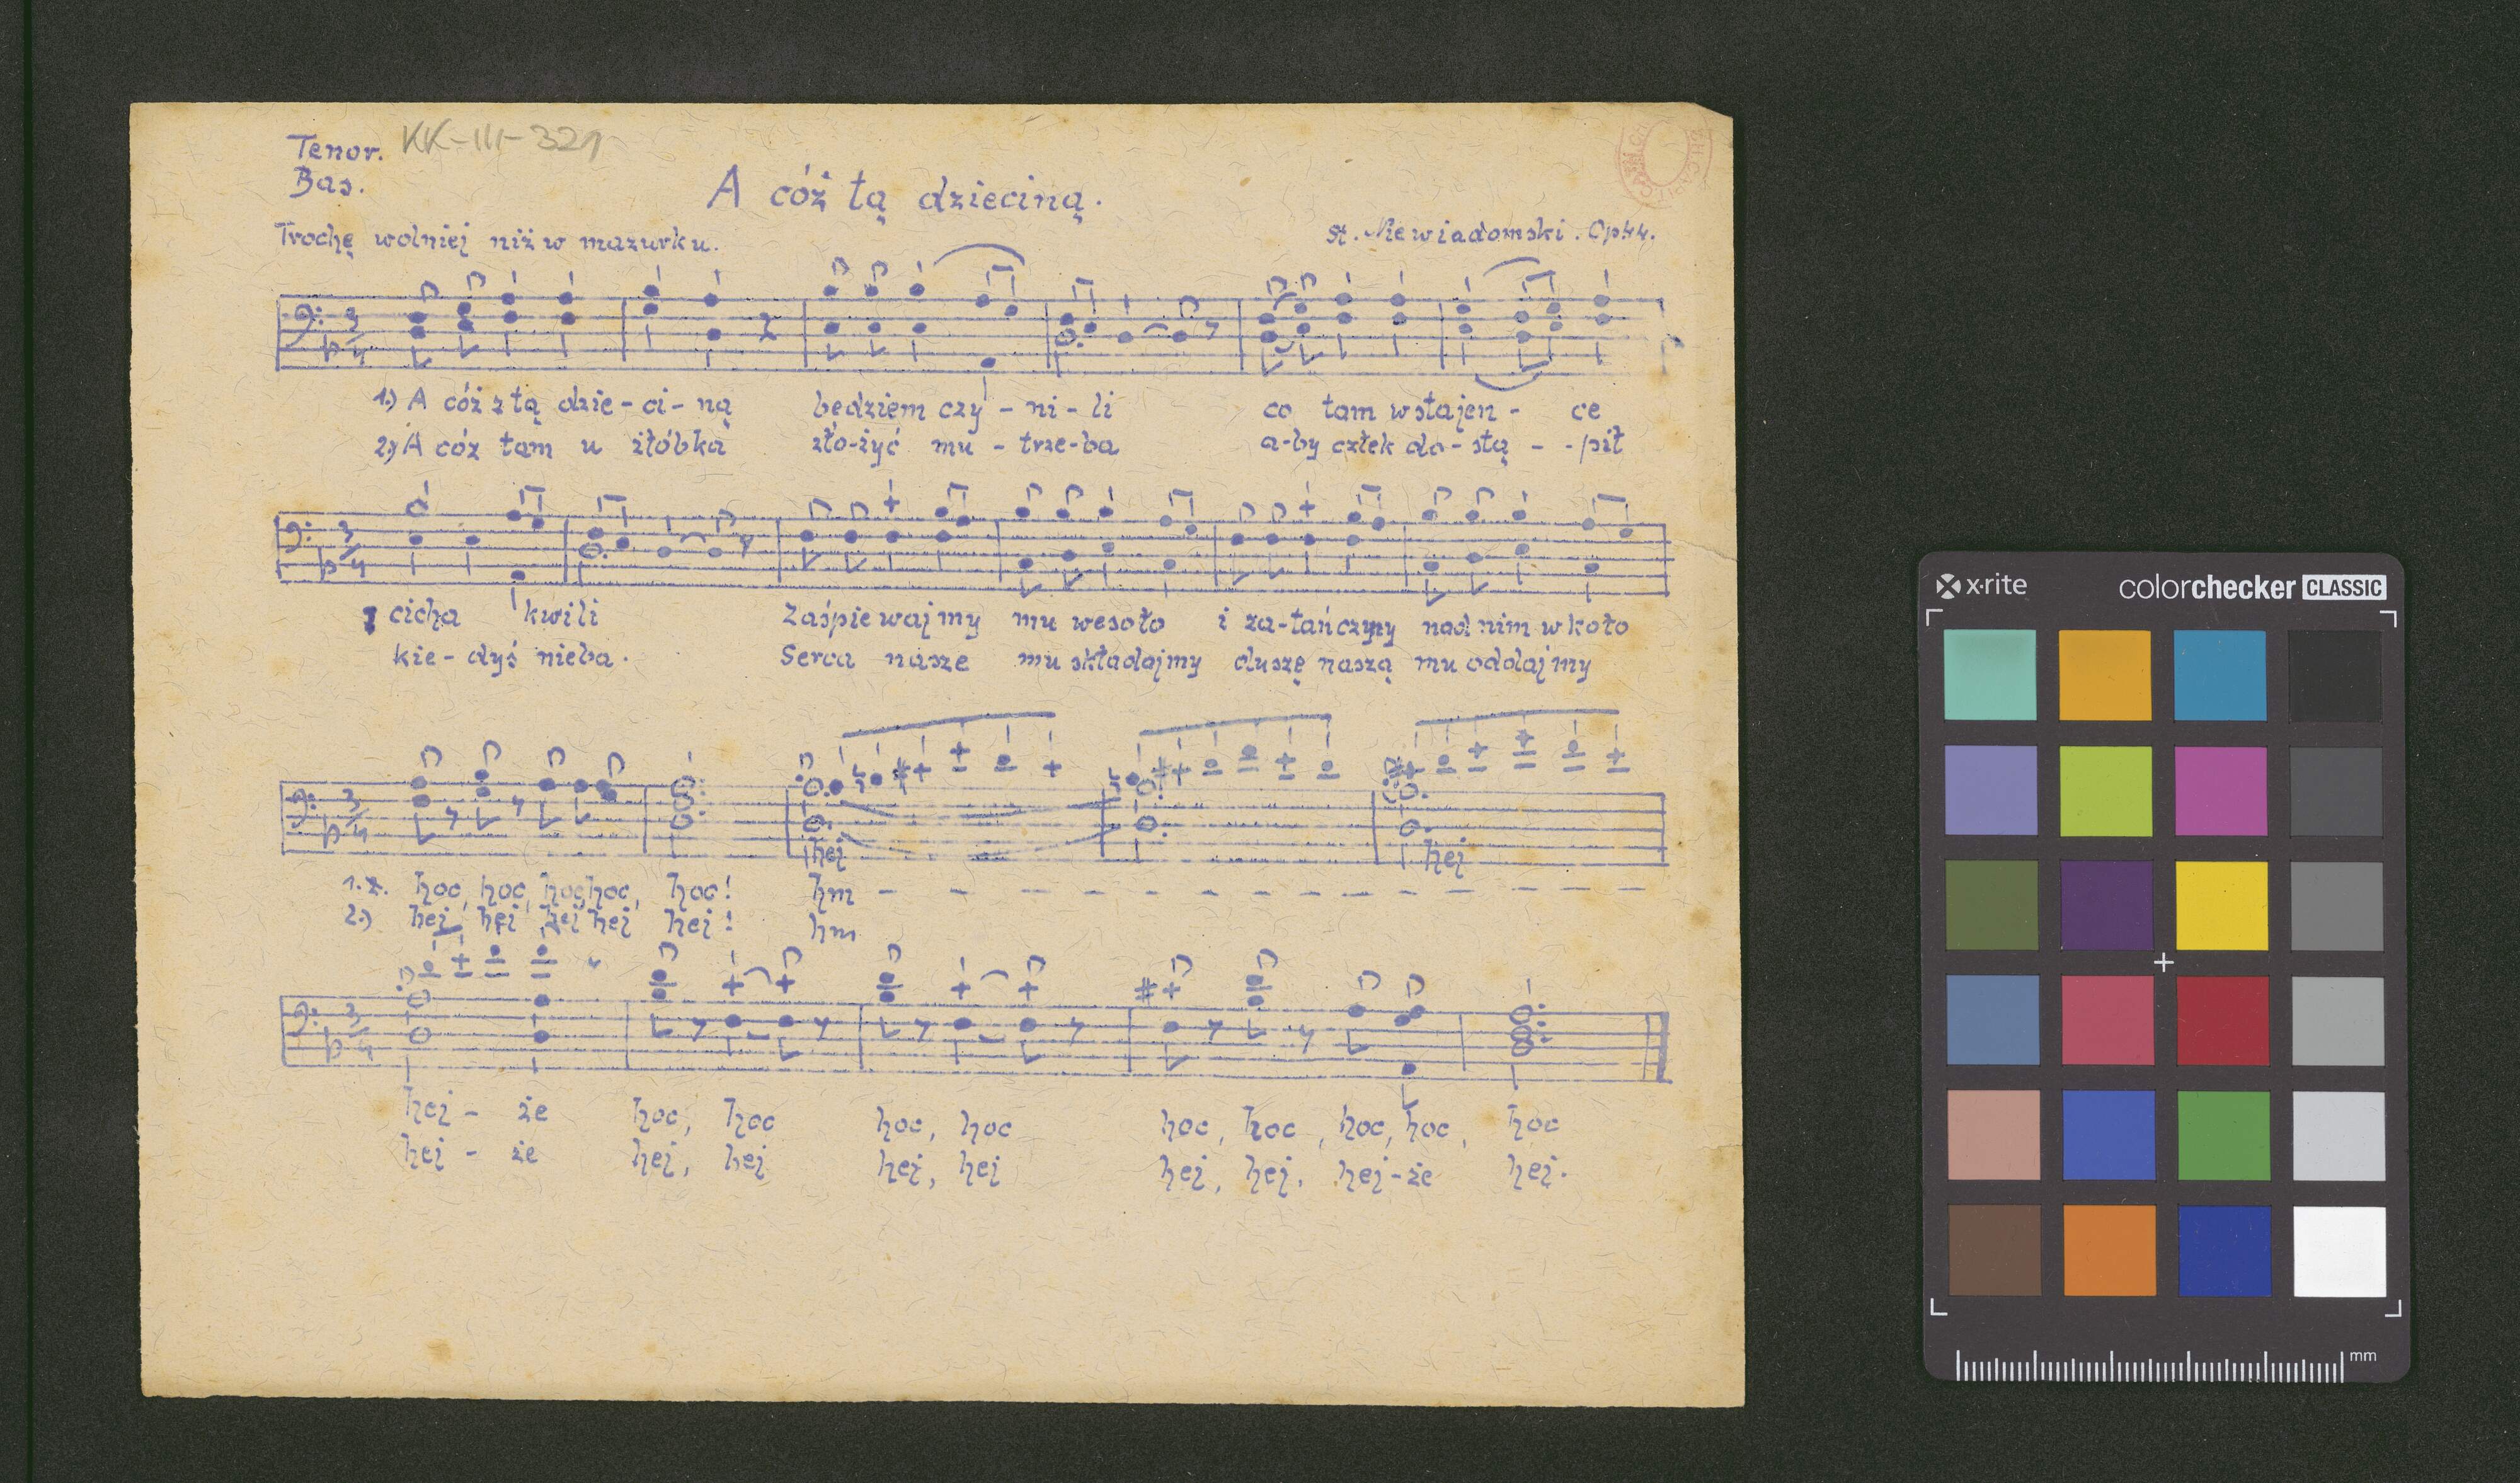 Tenor. KK-III-321
Bas.
A cóż tą dzieciną.
Trochę wolniej niż w mazurku.
St. Niewiadomski. Op 44.
1.) A cóż z tą dzie-ci-ną będziem czy-ni-li co tam w stajen-ce
2.) A cóż tam u żłóbka zło-żyć mu-trze-ba a-by człek do-stą--pił
cicha kwili Zaśpiewajmy mu wesoło i za-tańczymy nad nim w koło
kie-dyś nieba. Serca nasze mu składajmy duszę naszą mu oddajmy
hej hej
1. hoc, hoc, hoc, hoc, hoc! hm - - - - - - - - - - -
2.) hej hej hej hej hej! hm
hej - że hoc, hoc hoc, hoc hoc, hoc, hoc, hoc, hoc
hej - że hej, hej hej, hej hej, hej, hej-że hej.
x·rite colorchecker CLASSIC
mm